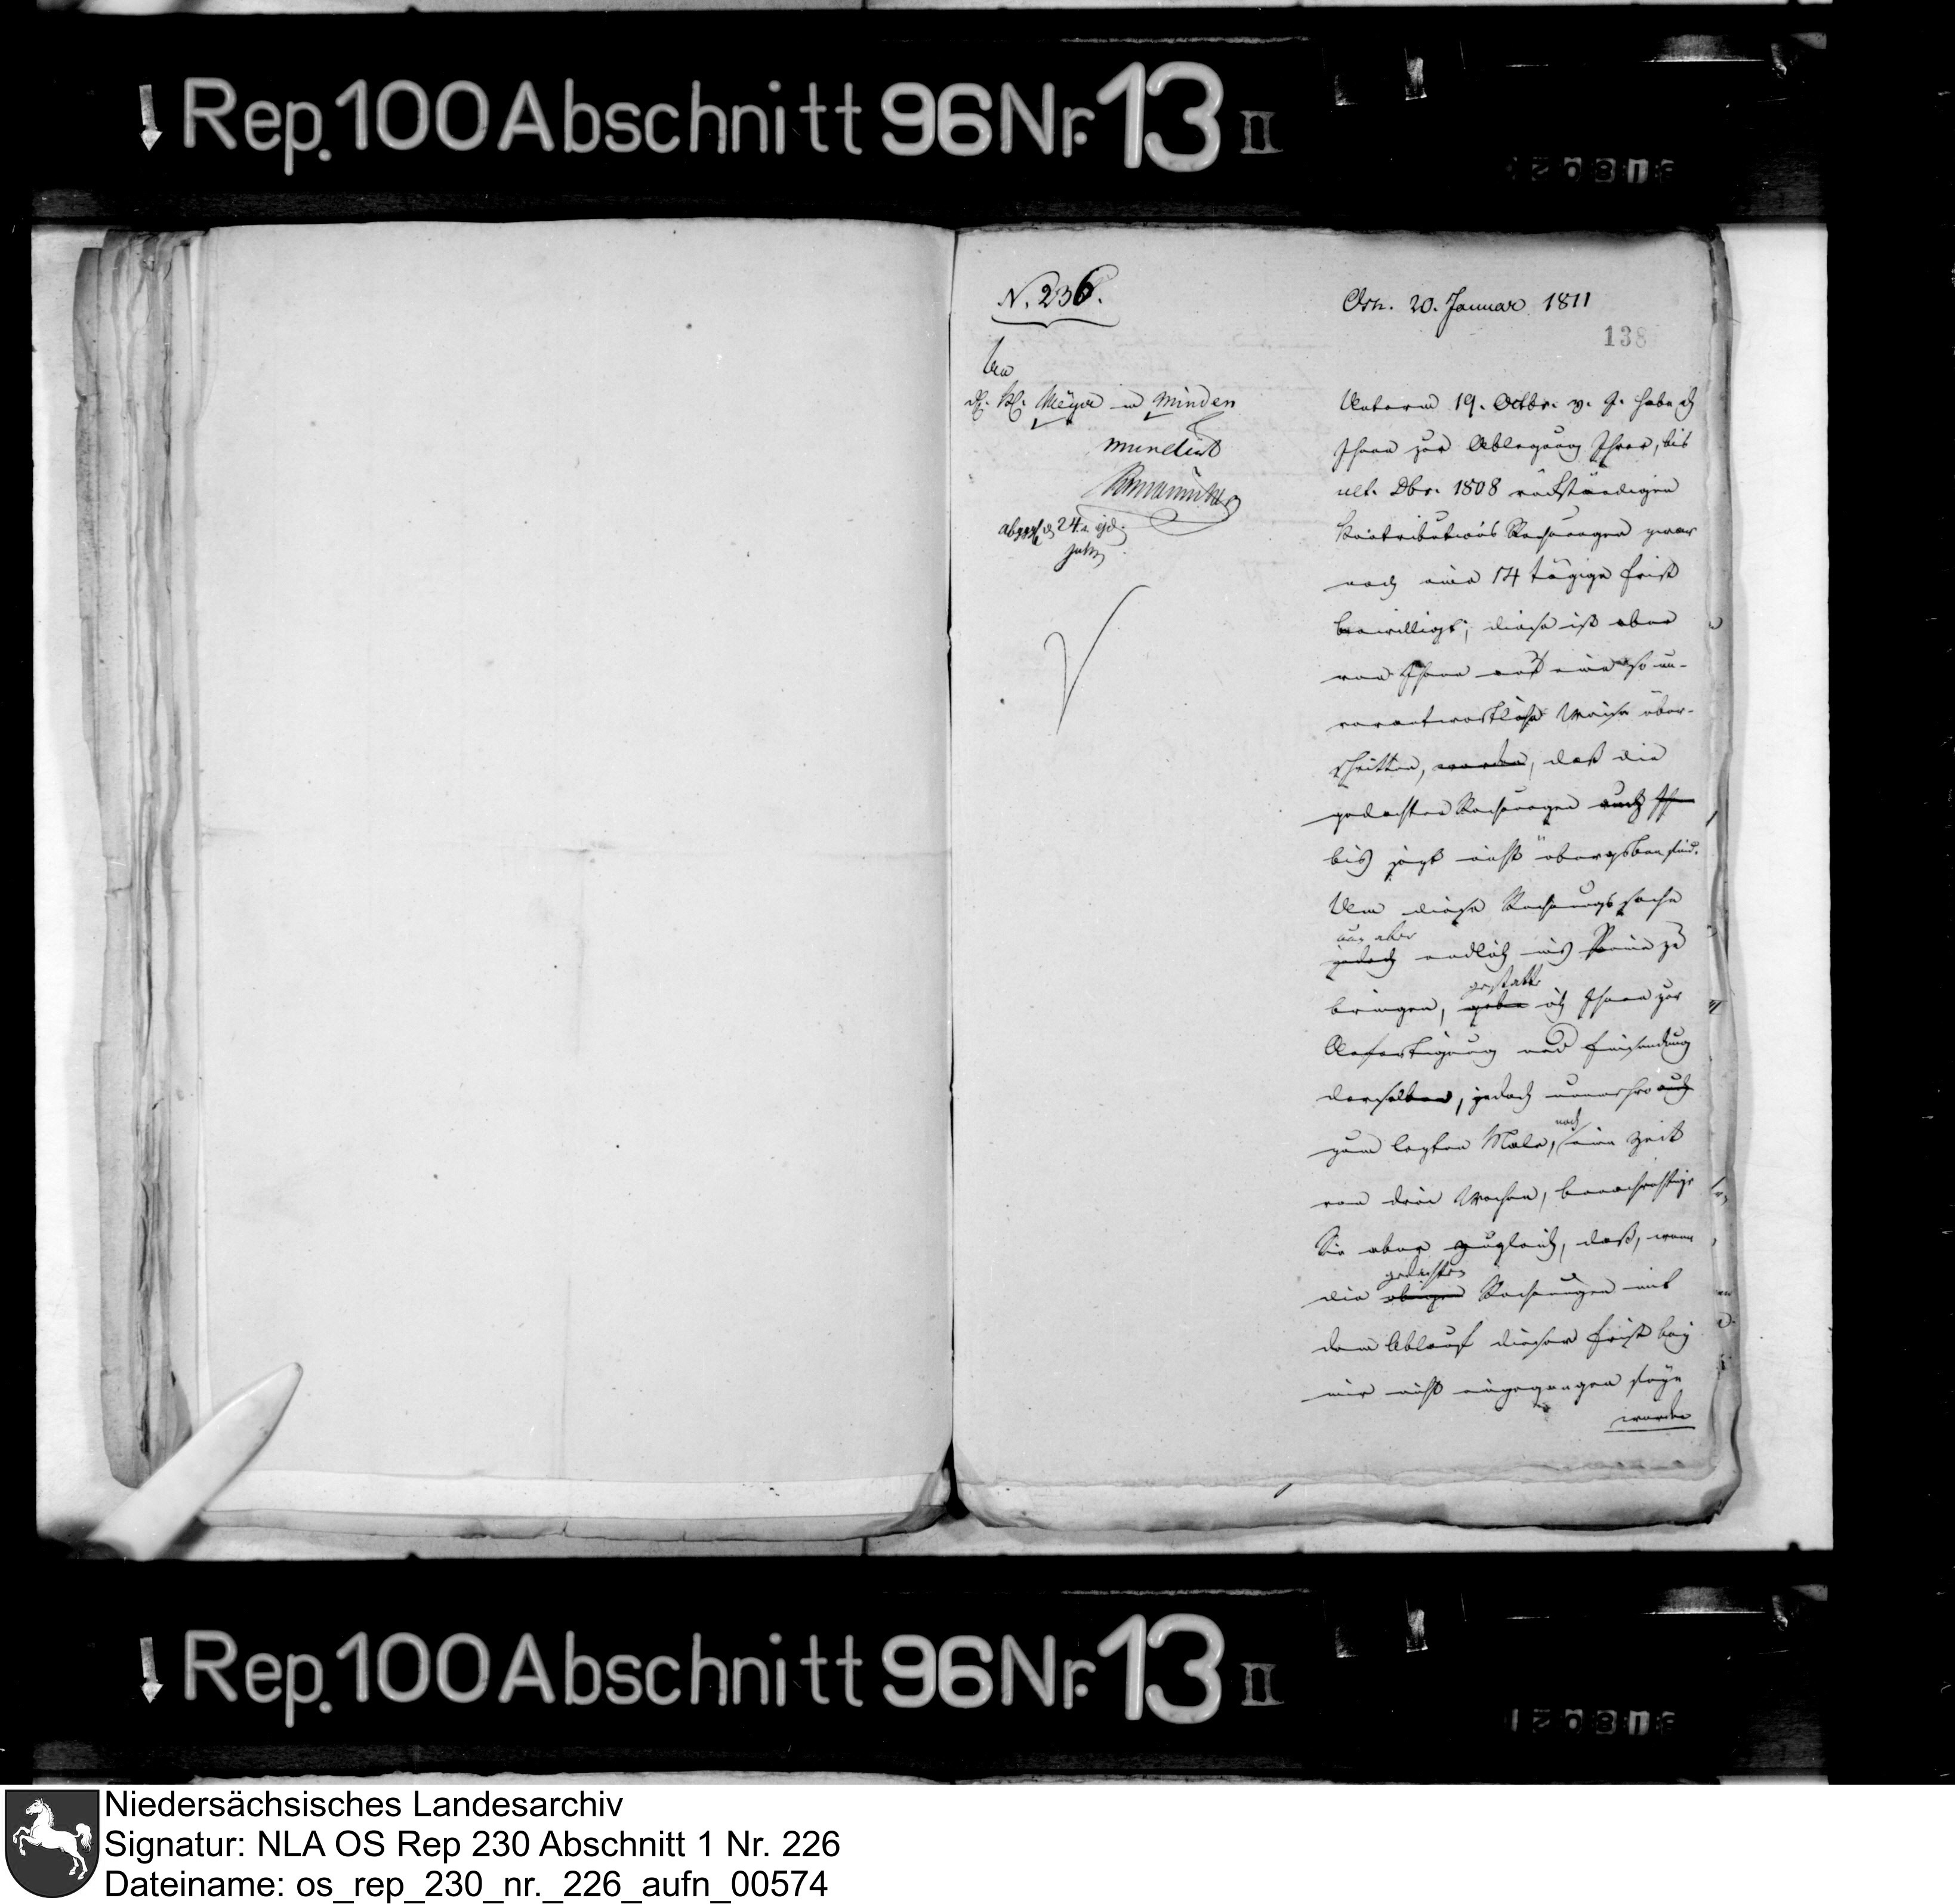 Rep. 100 Abschnitt 96 Nr. 13 II
N. 236.
Osn. 20. Januar 1811
138
An
Meyer in Minden
mundirt
abges. d 24. ejd.
Unterm 19. Octbr. v. J. habe ich
Ihnen zur Ablegung Ihrer, bis
ult. Dbr. 1808 rückständigen
Contributions Rechnungen zwar
noch eine 14 tägige Frist
bewilligt; diese ist aber
von Ihnen auf eine so un-
verantwortliche Weise über-
schritten, worden, daß die
gedachten Rechnungen
bis jezt nicht übergeben sind.
Um diese Rechnungssache
nun aber
jedoch endlich ins Reine zu
gestatte
bringen, gebe ich Ihnen zur
Anfertigung und Einsendung
derselben, jedoch nunmehro auch
noch
zum lezten Male, eine Zeit
von drei Wochen, benachrichtige
Sie aber zugleich, daß, wenn
gedachten
die obigen Rechnungen mit
dem Ablauf dieser Frist bey
mir nicht eingegangen seyn
werden
Rep. 100 Abschnitt 96 Nr. 13 II
Niedersächsisches Landesarchiv
Signatur: NLA OS Rep 230 Abschnitt 1 Nr. 226
Dateiname: os_rep_230_nr._226_aufn_00574